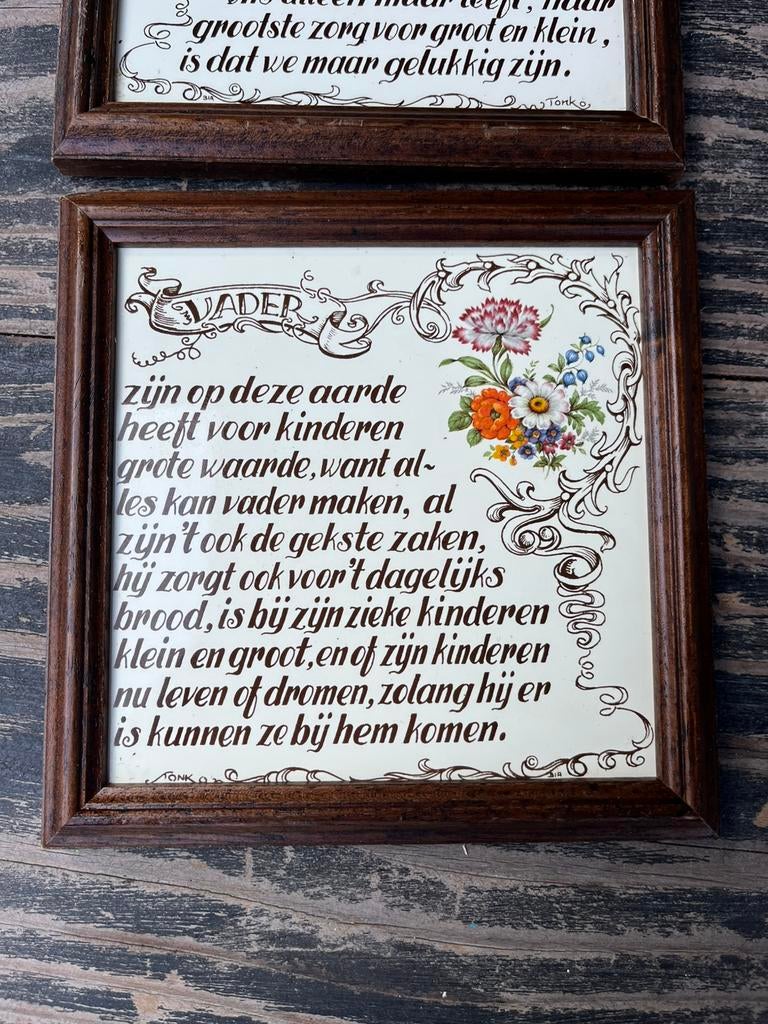 ons alleen maar leeft, haar
grootste zorg voor groot en klein,
is dat we maar gelukkig zijn.
BIA Tonk
VADER
zijn op deze aarde
heeft voor kinderen
grote waarde, want al~
les kan vader maken, al
zijn't ook de gekste zaken,
hij zorgt ook voor't dagelijks
brood, is bij zijn zieke kinderen
klein en groot, en of zijn kinderen
nu leven of dromen, zolang hij er
is kunnen ze bij hem komen.
TONK BIA